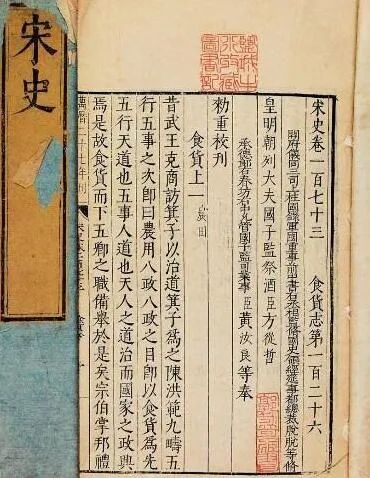 宋史卷一百七十三 食貨志第一百二十六
開府儀同三司上柱國錄軍國重事前中書右丞相監修國史領經筵事都總裁脫脫等修
皇明朝列大夫國子監祭酒臣方從哲
承德郎右春坊右中允管國子監司業事臣黃汝良等奉
勑重校刊
食貨上一 農田
昔武王克商訪箕子以治道箕子爲之陳洪範九疇五
行五事之次卽曰農用八政八政之目卽以食貨爲先
五行天道也五事人道也天人之道治而國家之政興
焉是故食貨而下五卿之職備舉於是矣宗伯掌邦禮
萬曆二十七年刊
宋史